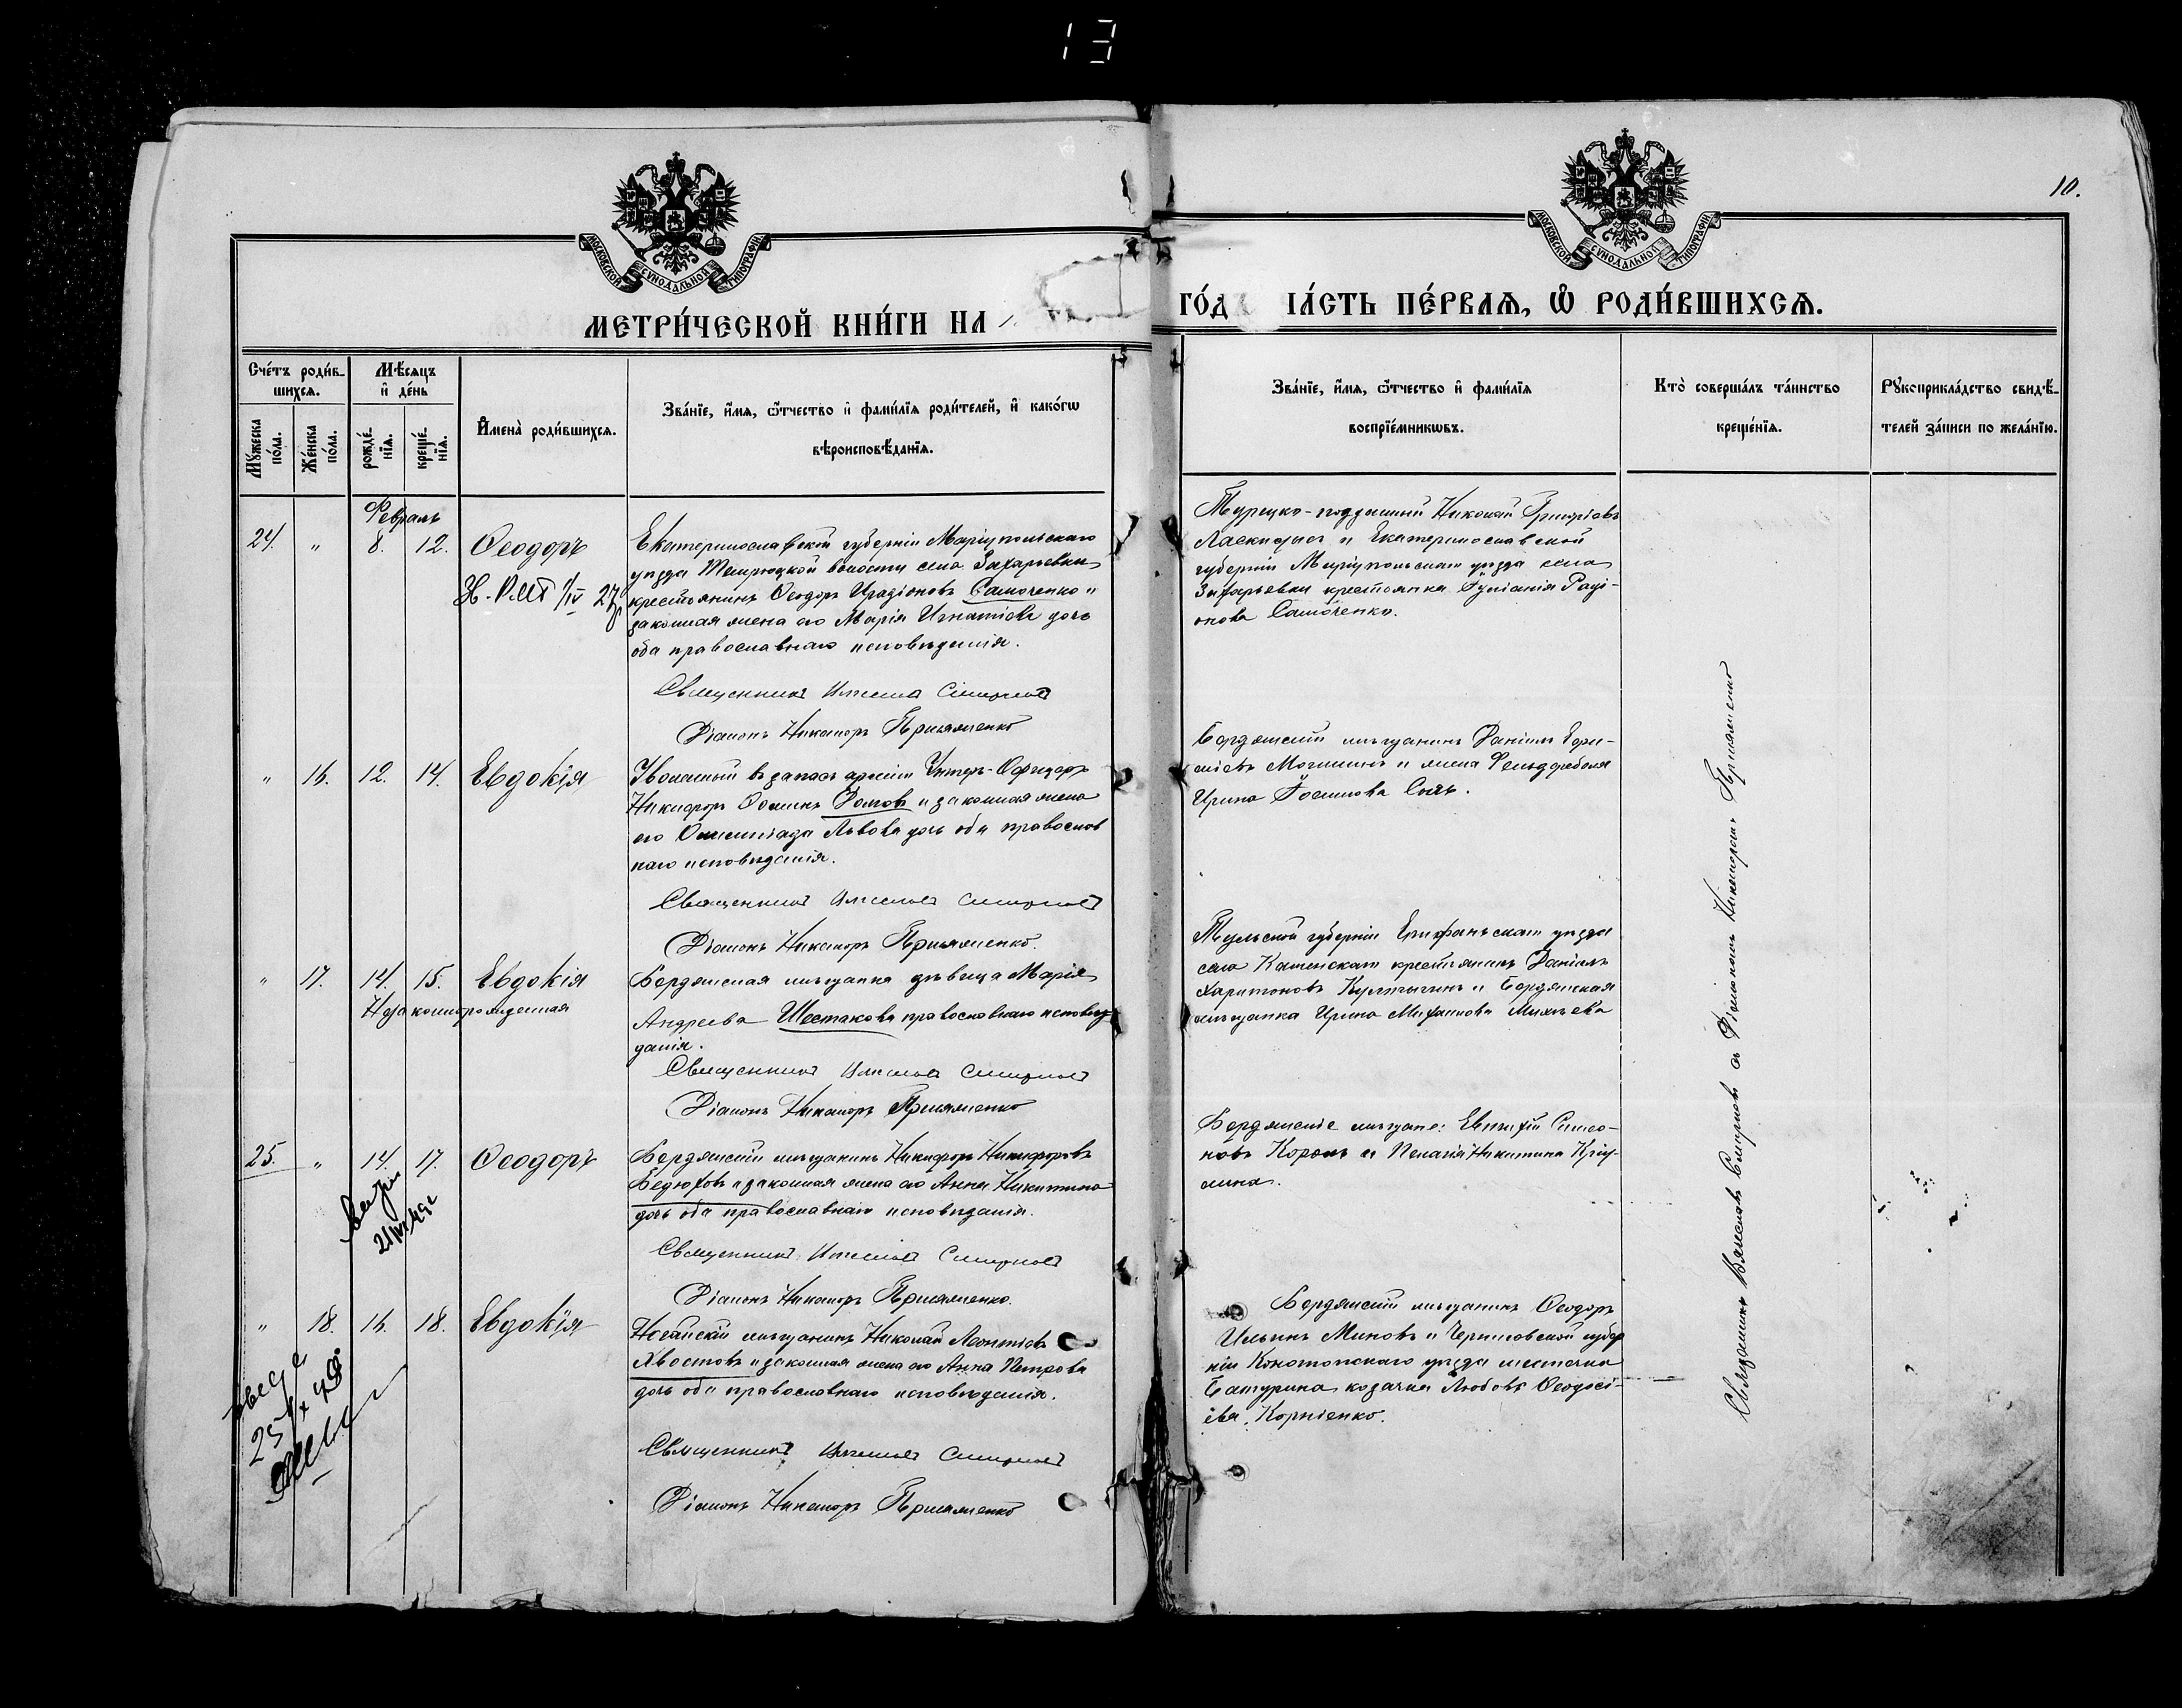 13
10.
МОСКОВСКОЙ СѴНОДАЛЬНОЙ ТИПОГРАФІИ
МОСКОВСКОЙ СѴНОДАЛЬНОЙ ТИПОГРАФІИ
МЕТРИ́ЧЕСКОЙ КНИ́ГИ НА 1
ГО́Д ЧА́СТЬ ПЕ́РВАѦ, Ѡ РОДИ́ВШИХСѦ.
Сче́тъ роди́в-
шихсѧ.
Мꙋжеска по́ла.
Же́нска по́ла.
Мѣ́сѧцъ
и де́нь
рожде́-
нїѧ.
креще́-
нїѧ.
И҆мена̀ роди́вшихсѧ.
Зва́нїе, и҆́мѧ, ѻ҆́тчество и҆ фами́лїѧ роди́телей, и҆ како́гѡ
вѣроисповѣ́данїѧ.
Зва́нїе, и҆́мѧ, ѻ҆́тчество и҆ фами́лїѧ
воспрїе́мникѡвъ.
Кто̀ соверша́лъ та́инство
креще́нїѧ.
Рꙋкоприкла́дство свидѣ́-
телей за́писи по жела́нїю.
Февраль
24. " 8. 12. Ѳеодоръ
Екатеринославской губерніи Маріупольскаго
уѣзда Темрюцкой волости села Захарьевки
крестьянинъ Ѳеодоръ Иродіоновъ Самоченко и
законная жена его Марія Игнатіева дочь
оба православнаго исповѣданія.
Священникъ Вячеславъ Смирновъ
Діаконъ Никаноръ Пришляменко
Турецко-подданный Николай Григоріевъ
и Екатеринославской
губерніи Маріупольскаго уѣзда села
Захарьевки крестьянка
онова Самоченко.
" 16. 12. 14. Евдокія
Уволенный въ запасъ арміи Унтеръ-Офицеръ
Никифоръ Ѳоминъ и законная жена
его Олимпіада Львова дочь оба православ
наго исповѣданія.
Священникъ Вячеславъ Смирновъ
Діаконъ Никаноръ Пришляменко.
Бердянскій мѣщанинъ Даніилъ
и жена Фельдфебеля
Ирина
" 17. 14. 15. Евдокія
Незаконнорожденная
Бердянская мѣщанка дѣвица Марія
Андреева Шестакова православнаго исповѣ
данія.
Священникъ Вячеславъ Смирновъ
Діаконъ Никаноръ Пришляменко
Тульской губерніи Епифаньскаго уѣзда
села Каменскаго крестьянинъ Даніилъ
Харитоновъ и Бердянская
мѣщанка Ирина Михѣева
25. " 14. 17. Ѳеодоръ
Бердянскій мѣщанинъ Никифоръ Никифоровъ
Бедюховъ и законная жена его Анна Никитина
дочь оба православнаго исповѣданія.
Священникъ Вячеславъ Смирновъ
Діаконъ Никаноръ Пришляменко.
Бердянскіе мѣщане: Евтихій Симео-
новъ Король и Пелагія Никитина
" 18. 16. 18. Евдокія
Ногайскій мѣщанинъ Николай Леонтіевъ
Хвостовъ и законная жена его Анна Петрова
дочь оба православнаго исповѣданія.
Священникъ Вячеславъ Смирновъ
Діаконъ Никаноръ Пришляменко
Бердянскій мѣщанинъ Ѳеодоръ
Ильинъ Миновъ и Черниговской губер
ніи Конотопскаго уѣзда мѣстечка
Батурина козачка Любовь Ѳеодосі-
ева Корніенко.
Священникъ Вячеславъ Смирновъ съ Діакономъ Никаноромъ Пришляменко